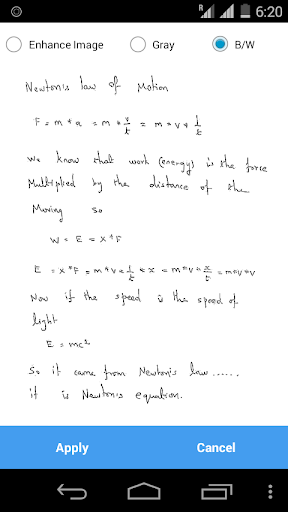 R 6:20
Enhance Image Gray B/W
Newton's law of Motion
F = m * a = m * v/t = m * v * 1/t
we know that work (energy) is the force
Multiplied by the distance of the
Moving so
W = E = X * F
E = X * F = m * v * 1/t * x = m * v * x/t = m * v * v
Now if the speed is the speed of
light
E = mc²
So it came from Newton's law......
it is Newton's equation.
Apply Cancel